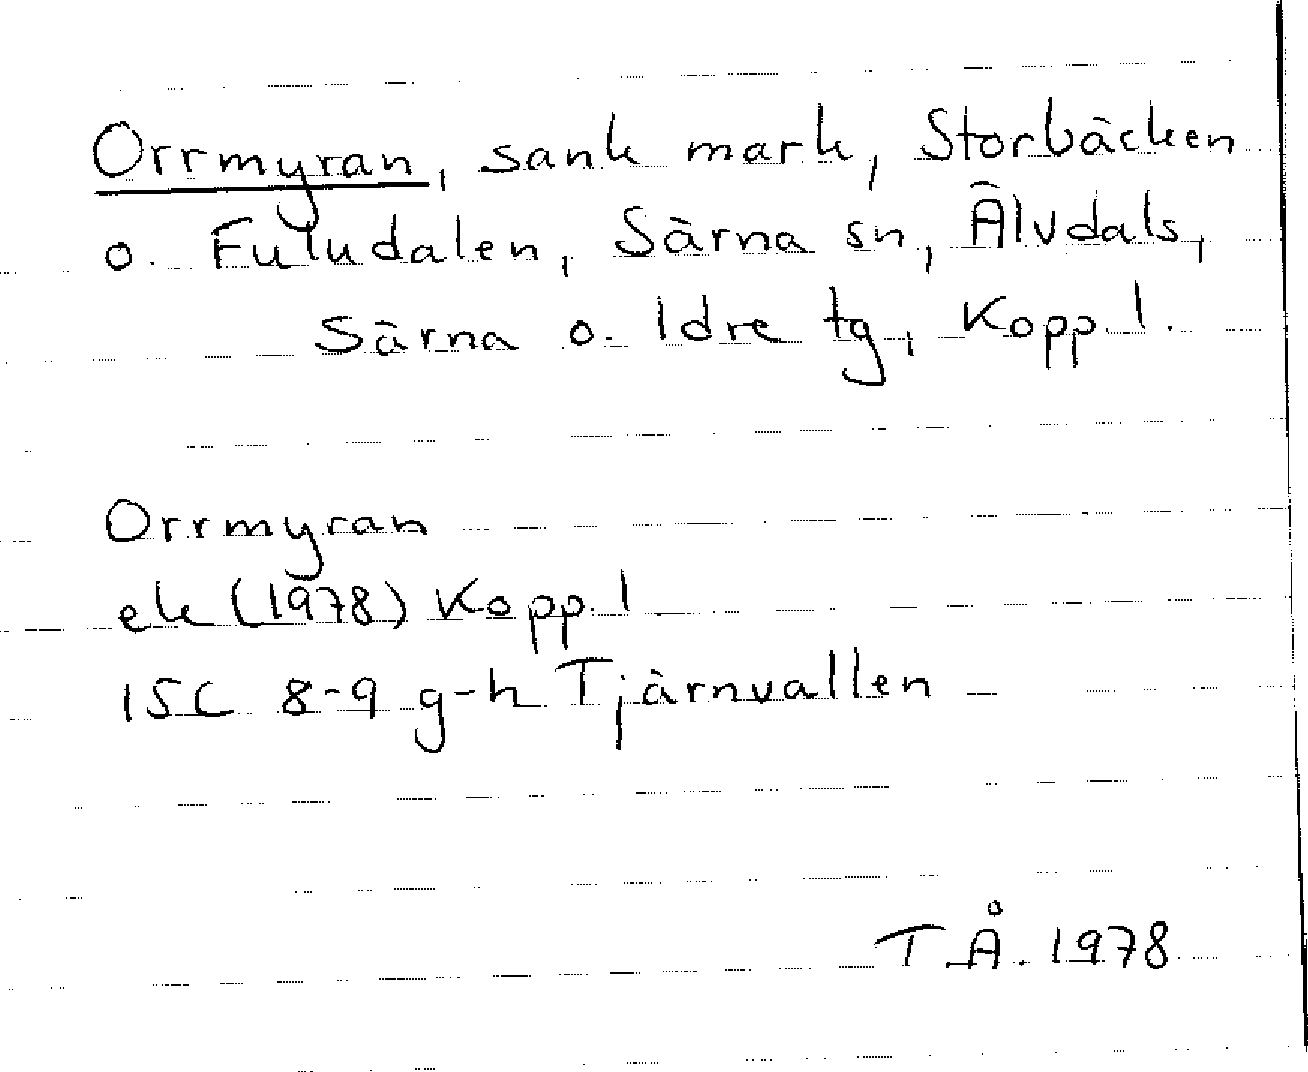 Orrmyran, sank mark, Storbäcken
o. Fuludalen, Särna sn, Älvdals,
Särna o. Idre tg, Kopp. l.
Orrmyran
ek (1978) Kopp. l
15C 8-9 g-h Tjärnvallen
T.Å. 1978